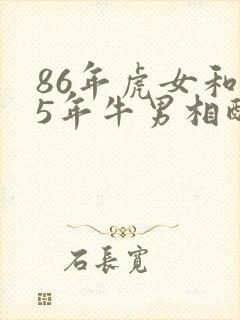 86年虎女和
5年牛男相配
石長寬